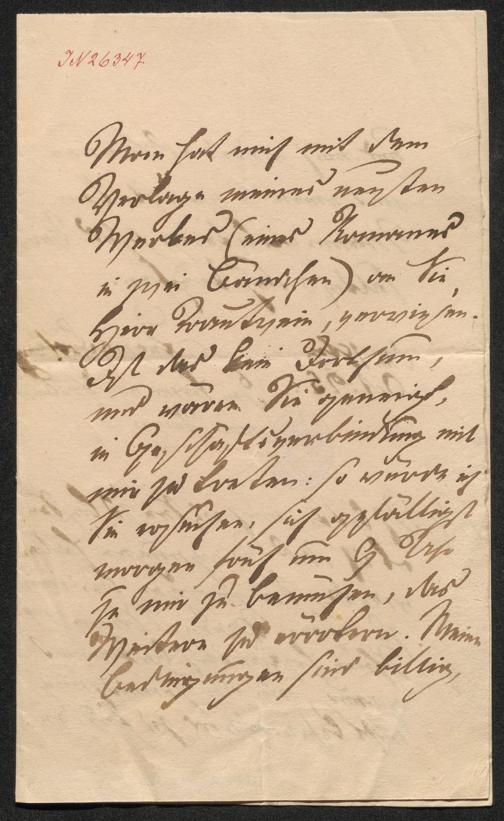 IN 26347
Man hat mich mit dem
Verlage meines neusten
Werkes (eines Romanes
in zwei Bändchen) an Sie,
Herr Trautwein, verwiesen.
Ist das kein Irrthum,
und wären Sie geneigt,
in Geschäftsverbindung mit
mir zu treten: so würde ich
Sie ersuchen, sich gefälligst
morgen früh um 9 Uhr
zu mir zu bemühen, das
Weitere zu erörtern. Meine
Bedingungen sind billig,